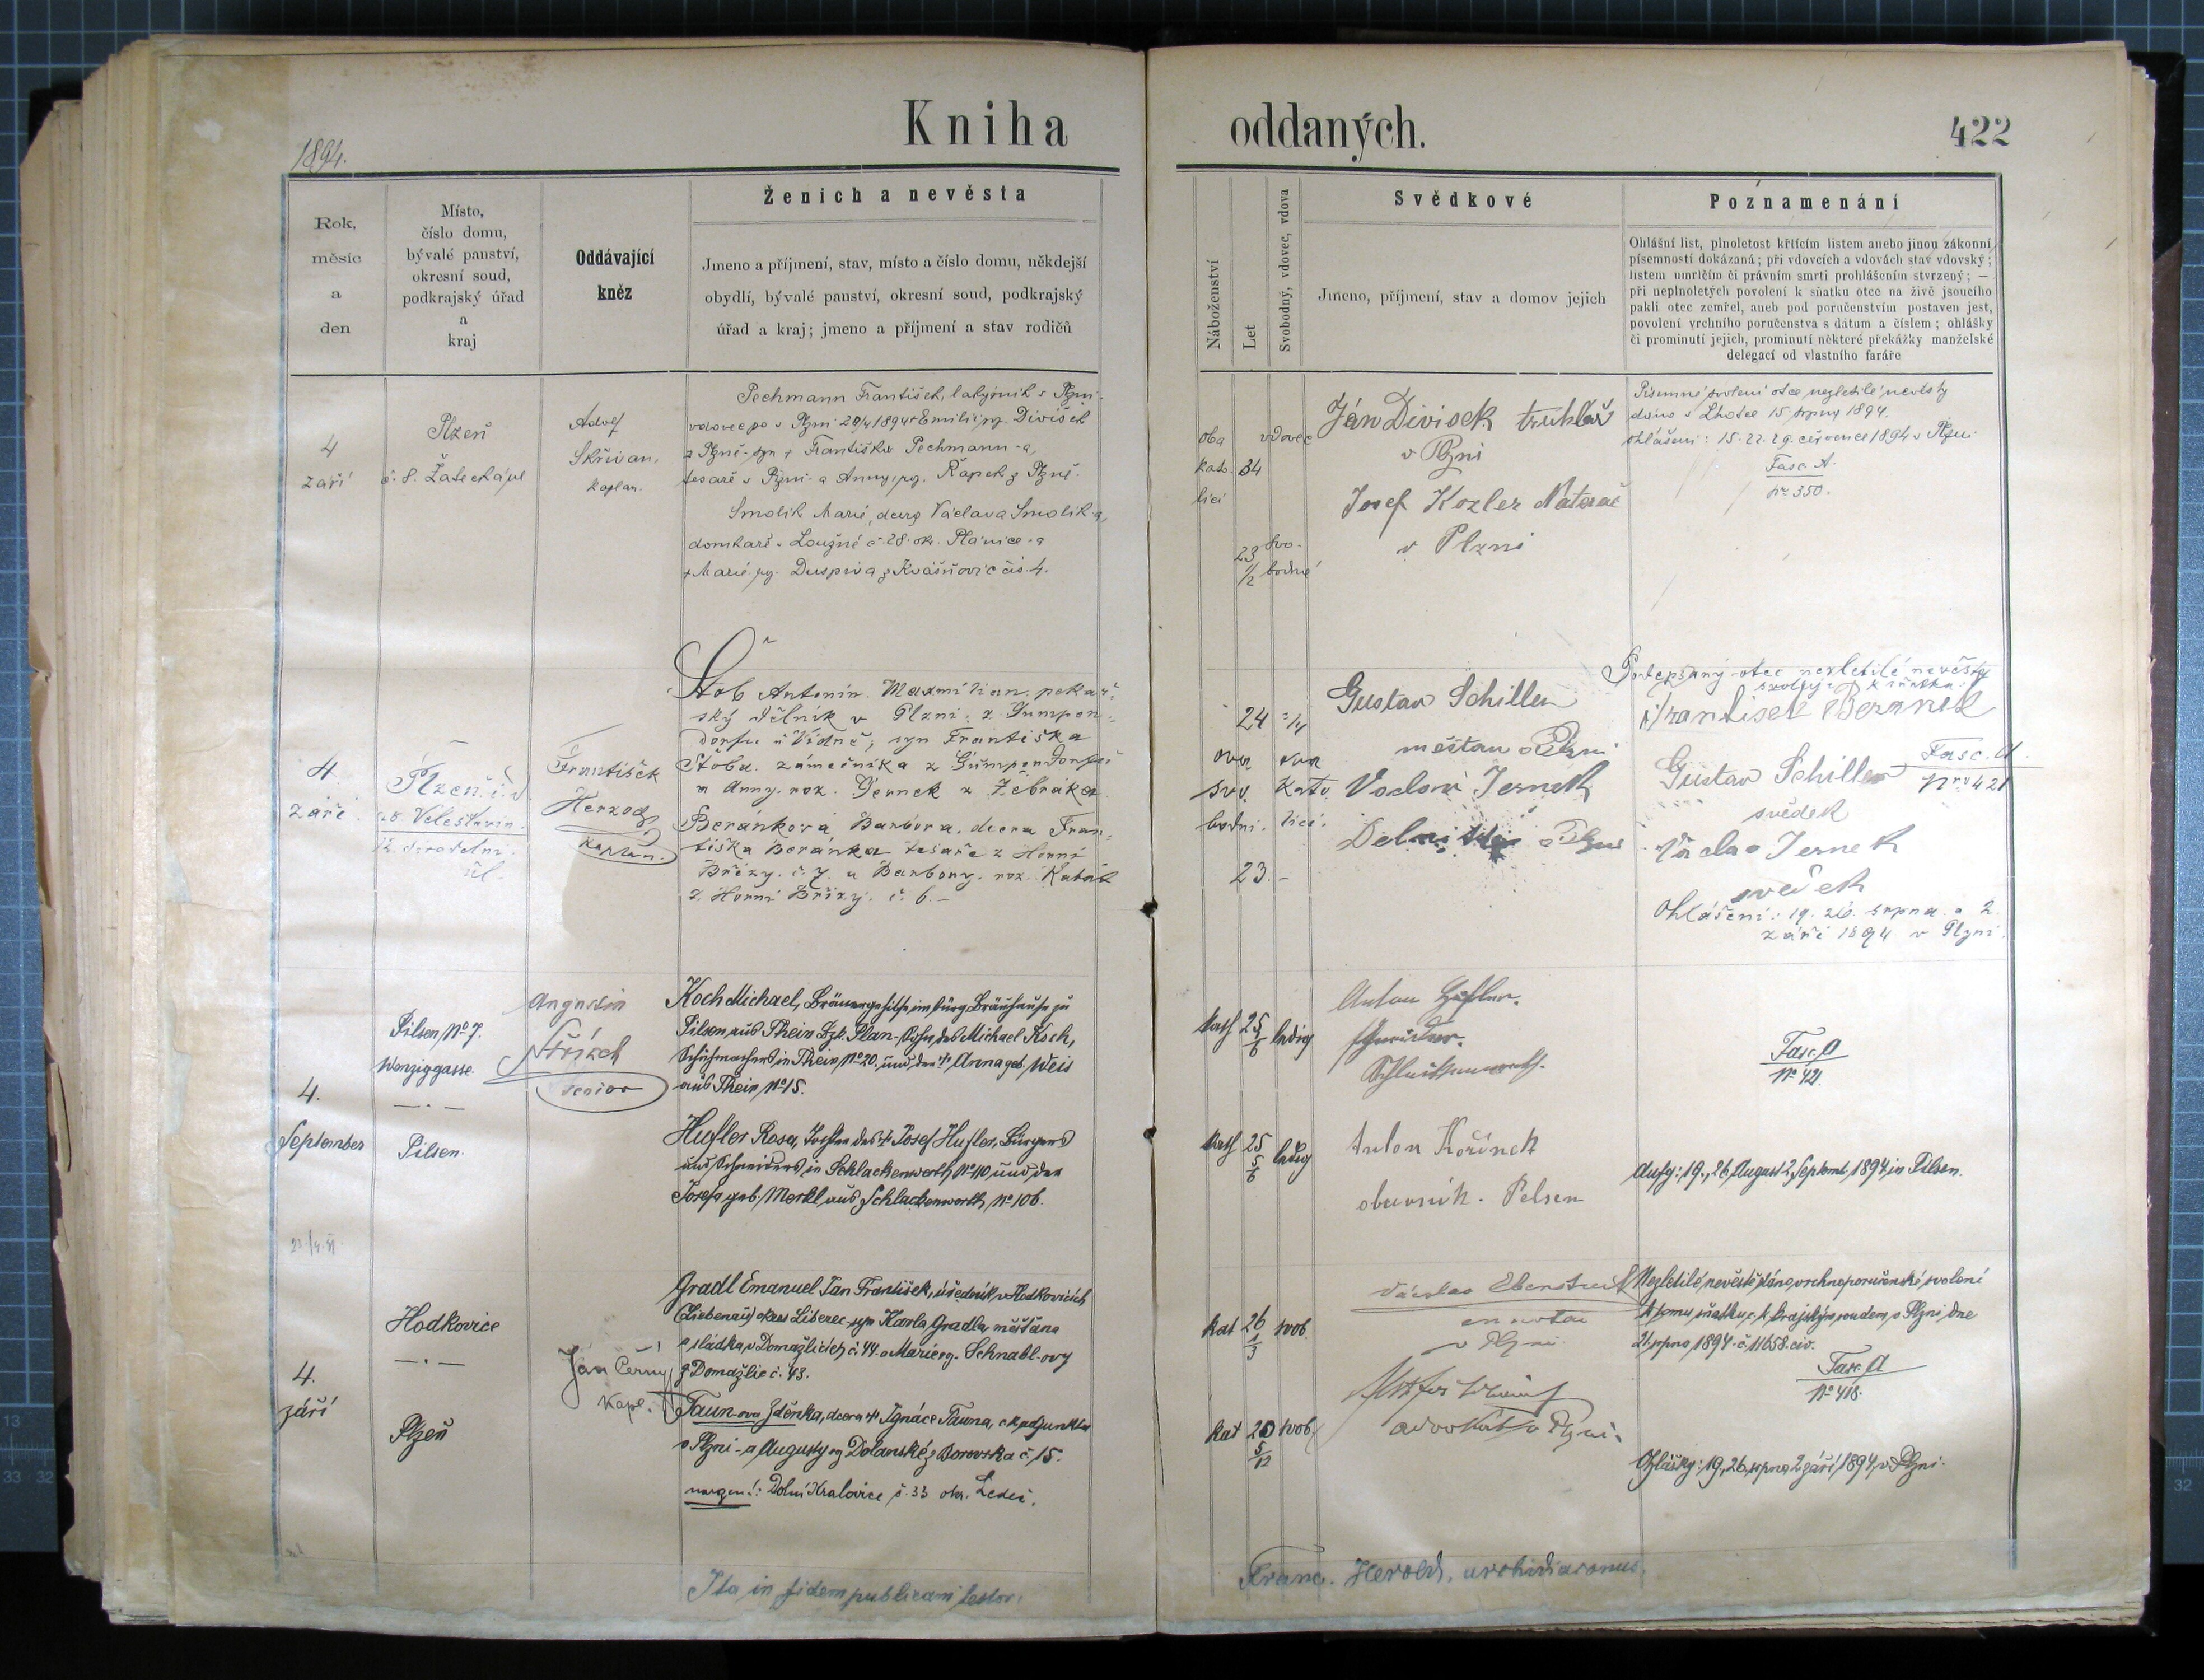 Kniha oddaných.
1894.
422
Rok,
měsíc
a
den
Místo,
číslo domu,
bývalé panství,
okresní soud,
podkrajský úřad
a
kraj
Oddávající
kněz
Ženich a nevěsta
Jmeno a příjmení, stav, místo a číslo domu, někdejší
obydlí, bývalé panství, okresní soud, podkrajský
úřad a kraj; jmeno a příjmení a stav rodičů
Náboženství
Let
Svobodný, vdovec, vdova
Svědkové
Jmeno, příjmení, stav a domov jejich
Poznamenání
Ohlášní list, plnoletost křticím listem anebo jinou zákonní
písemností dokázaná; při vdovcích a vdovách stav vdovský;
listem umrlčím či právním smrti prohlášením stvrzený; —
při neplnoletých povolení k sňatku otce na živě jsoucího
pakli otec zemřel, aneb pod poručenstvím postaven jest,
povolení vrchního poručenstva s dátum a číslem; ohlášky
či prominutí jejich, prominutí některé překážky manželské
delegací od vlastního faráře
4
září
Plzeň
č. 8. Žatecká ul
Adolf
Skřivan,
kaplan.
Pechmann František, lakýrník v Plzni.
vdovec po v Plzni 20/4 1894 + Emilii rz. Divíšek
z Plzně - syn + Františka Pechmann-a,
tesaře v Plzni - a Anny, rz. Řapek z Plzně.
Smolík Marie, dcera Václava Smolík-a,
domkaře v Loužné č. 28. okr. Plánice - a
+ Marie rz. Duspiva z Kvášňovic čís. 4.
oba
kato
lici
34
vdovec
23
1/2
svo-
bodná
Ján Divisek truhlař
v Plzni
Josef Kozler Natěrač
v Plzni
Písemné svolení otce nezletilé nevěsty
dáno v Lhotce 15. srpna 1894.
ohlášení: 15. 22. 29. července 1894 v Plzni
Fasc. A.
nr. 350.
4.
září.
Plzeň. č. d
28. Veleslavin.
ul.
František
Herzog
Kaplan.
Štob Antonín. Maxmilian. pekař-
ský dělník v Plzni; z Gumpen-
dorfu u Vídně, syn Františka
Štoba. zámečníka z Gumpendorfu
a Anny. roz. Pernek z Žebráka
Beránková Barbora. dcera Fran-
tiška Beránka tesaře z Horní
Břízy. č. 7. a Barbory. roz. Kabát
z. Horní Břízy. č. 6. -
24
oba
svo
bodni.
oba
kato
lici.
23. -
Gustav Schiller
měštan v Plzni
Vaclav Jernek
Podepsaný otec nezletilé nevěsty
svoluje k sňatku:
František Beranek
Fasc. A
Nro 421
Gustav Schiller
svědek
Václav Jernek
svědek
Ohlášení: 19. 26. srpna. a 2.
září 1894 v Plzni.
4.
September
Pilsen No 7.
Wenziggasse.
— . —
Pilsen.
Augustin
senior
Koch Michael, Bräuergehilfe im bürg. Bräuhause zu
Pilsen, aus Thein Bzk. Plan - Sohn des Michael Koch,
Schuhmachers in Thein No 20. und der + Anna geb. Weis
aus Thein No 15.
Hufler Rosa, Tochter des + Josef Hufler, Bürgers
und Schneiders in Schlackenwerth No 110 und der
Josefa geb. Merkl aus Schlackenwerth, No 106.
kath
25
5/6
ledig
kath
25
5/6
ledig
Anton Hufler.
Schneider.
Schlackenwerth.
Anton Kořínek
obuvník. Pelsen
Fasc. A
No 421.
Aufg: 19., 26. August 2. Septemb. 1894 in Pilsen.
4.
září
Hodkovice
— . —
Plzeň
Ján Černý
Kapl.
Gradl Emanuel Jan František, úředník v Hodkovicích
(Liebenau) okres Liberec, syn Karla Gradla, měšťana
a sládka v Domažlicích č. 44. a Marie rz. Schnabl-ovy
z Domažlic č. 43.
Taun-ova Zdeňka, dcera + Ignáce Tauna, c. k. adjunkta
v Plzni - a Augusty rz Dolanské z Borovska č. 15.
Dolní Kralovice č. 33 okr. Ledeč.
kat
26
1/3
svob.
kat
20
5/12
svob.
Václav
v Plzni
advokát v Plzni.
Nezletilé nevěstě dáno vrchnoporučenské svolení
k tomu sňatku c. k. krajským soudem v Plzni dne
21. srpna 1894. č. 11658. civ.
Fasc. A
No 418.
Ohlášky: 19., 26. srpna, 2 září 1894, v Plzni.
Ita in fidem publicam testor.
Franc. Herold, archidiaconus.